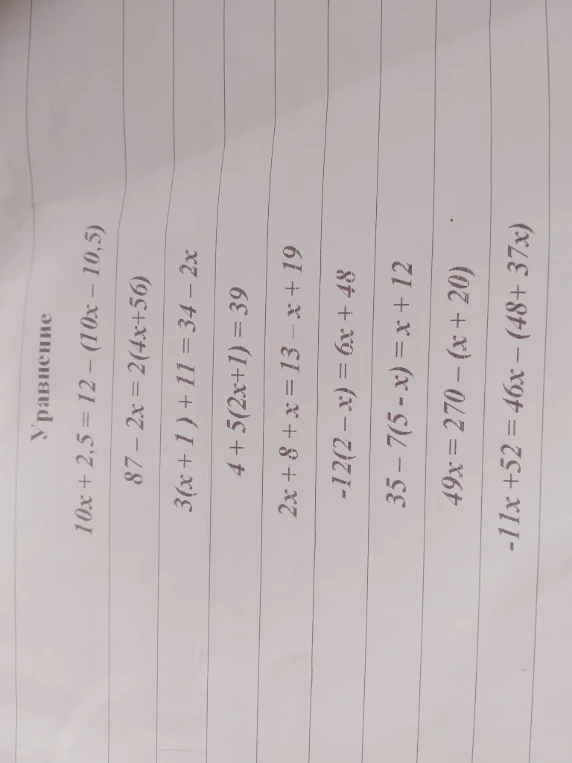 Уравнение
10x + 2,5 = 12 – (10x – 10,5)
87 – 2x = 2(4x+56)
3(x + 1 ) + 11 = 34 – 2x
4 + 5(2x+1) = 39
2x + 8 + x = 13 – x + 19
-12(2 – x) = 6x + 48
35 – 7(5 - x) = x + 12
49x = 270 – (x + 20)
-11x +52 = 46x – (48+ 37x)